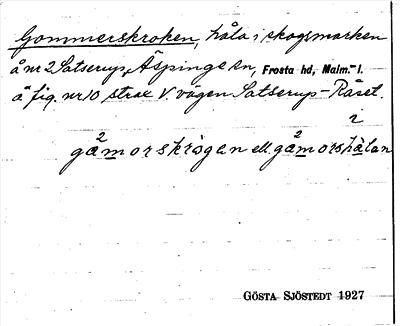 Gommerskroken, håla i skogsmarken
å nr 2 Satserup, Äspinge sn, Frosta hd, Malm.- l.
å fig. nr 10 strax V. vägen Satserup-Råset.
gåmorskrogen ell. gåmorshålan
GÖSTA SJÖSTEDT 1927